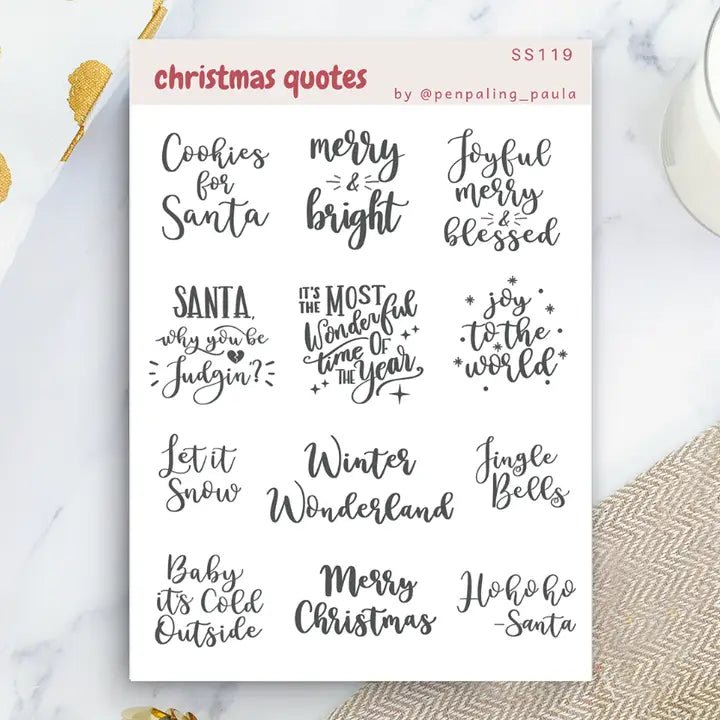 SS119
christmas quotes
by @penpaling_paula
Cookies
for
Santa
merry
&
bright
Joyful
merry
&
blessed
SANTA,
why you be
Judgin'?
IT'S
THE MOST
Wonderful
time OF
THE Year
joy
to the
world
Let it
Snow
Winter
Wonderland
Jingle
Bells
Baby
it's Cold
Outside
Merry
Christmas
Ho ho ho
-Santa